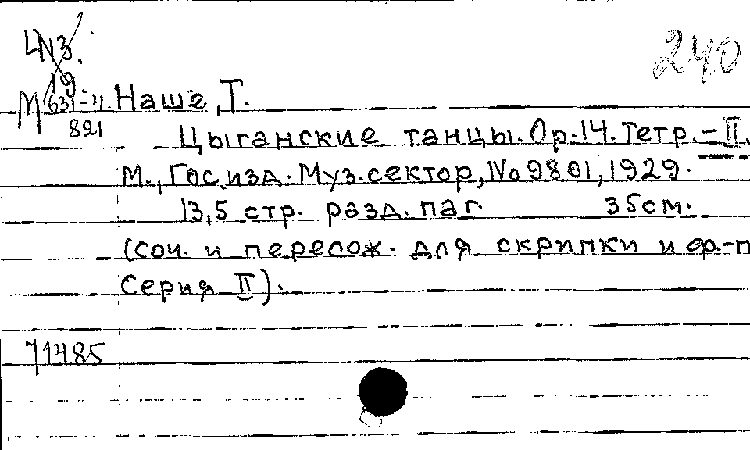 240
Наше, Т.
821
Цыганские танцы. Op. 14. Тетр. - II.
М., Гос. изд. Муз. сектор, No 9801, 1929.
13, 5 стр. разд. паг. 35 см.
(соч. и перелож. для скрипки и ф.-п
Серия II).
71485